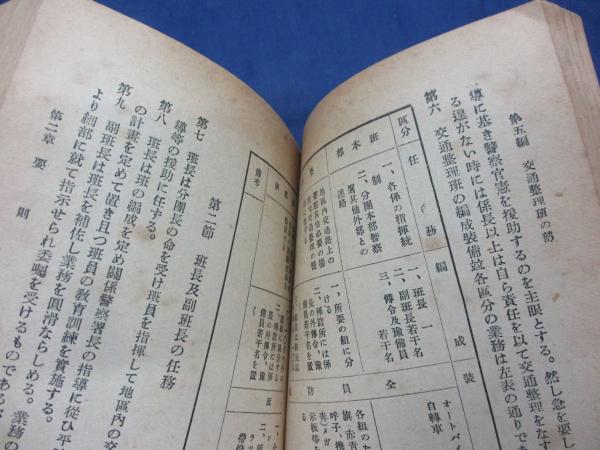 第五編 交通整理班の部
導に基き警察官憲を援助するのを主眼とする。然し急を要し
る遑がない時には係長以上は自ら責任を以て交通整理をなす
第六 交通整理班の編成裝備竝各區分の業務は左表の通りであ
區分
任務
編成
裝
班本部
一、各係の指揮統制
二、分團本部警察署其他外部との連絡
一、班長 一
二、副班長若干名
三、傳令及豫備員若干名
オートバイ
自轉車
地區內交通路上の
一、所要の組に分ける
二、係詰所には係長の外傳令、豫備員若干名を置く
全員
防
各組のため
旗(赤青)
(青)メガ
呼子、携
示板等を
備考
第二節 班長及副班長の任務
第七 班長は分團長の命を受け班員を指揮して地區內の交
導等の援助に任ずる。
第八 班長は班の編成を定め關係警察署長の指導に從ひ平時
の計畫を定めて置き且つ班員の教育訓練を實施する。
第九 副班長は班長を補佐し業務を圓滑ならしめる。業務の
より細部に就て指示せられ委囑を受けるものである
第二章 要則